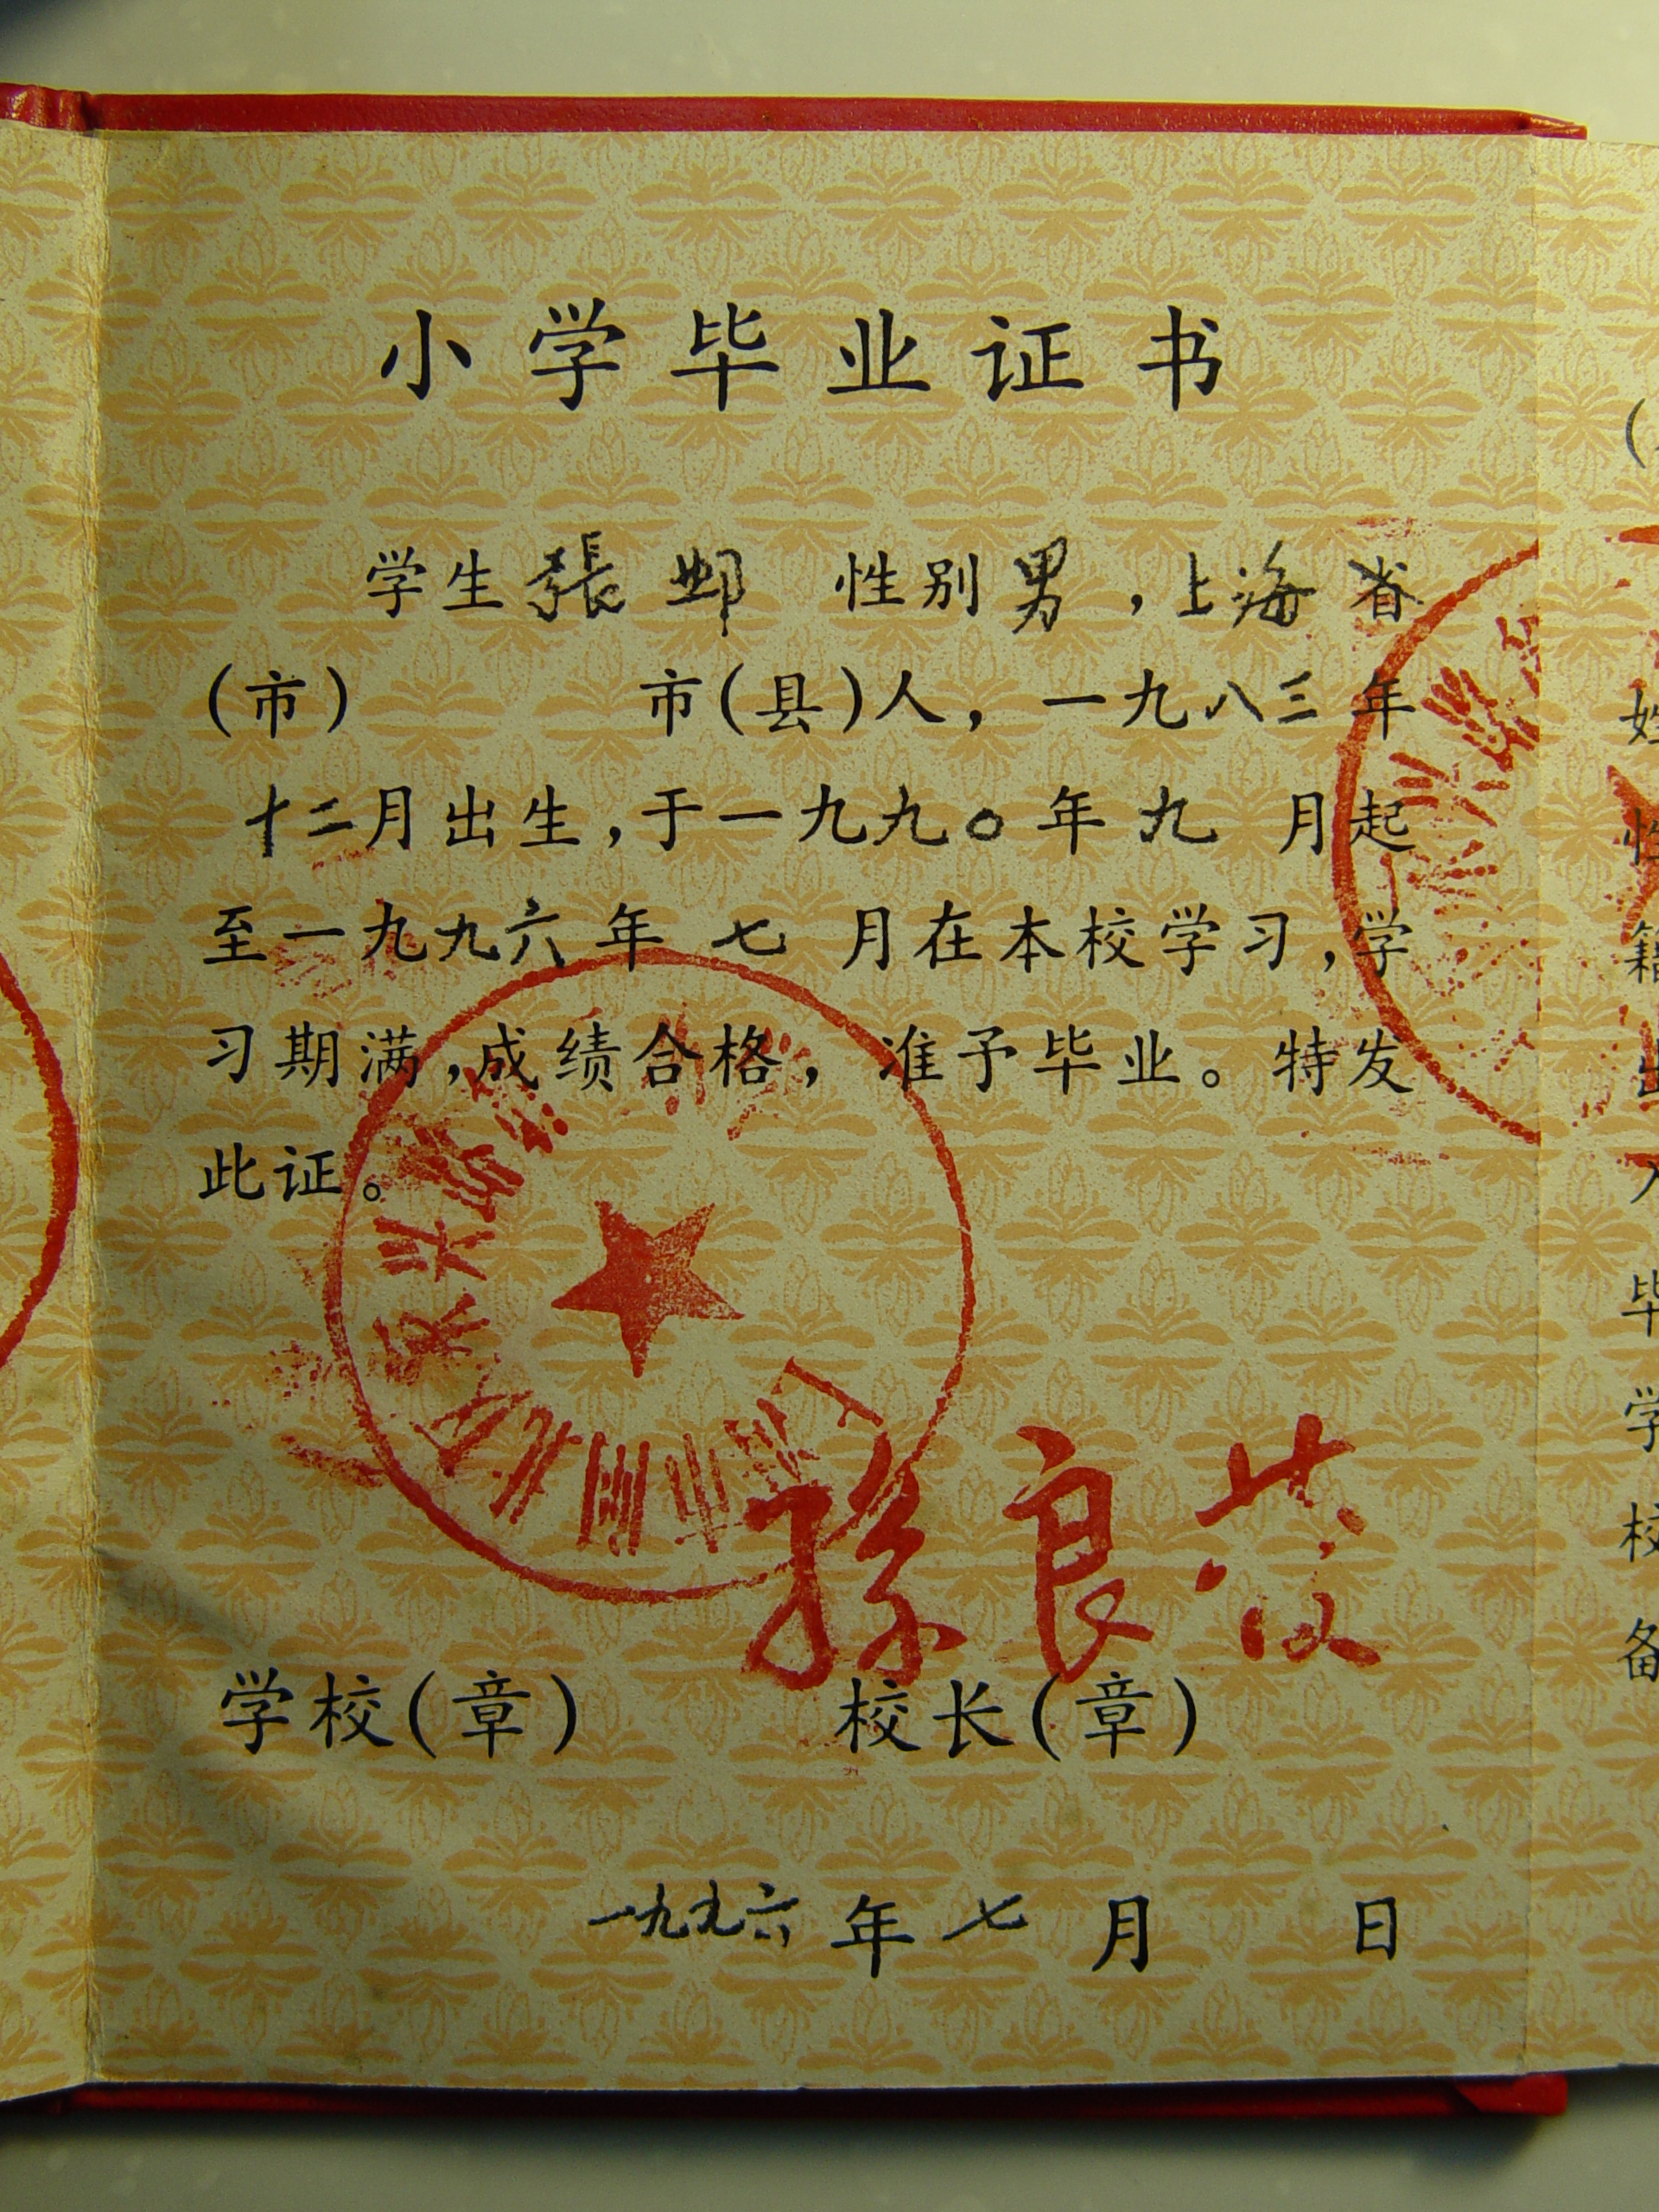 小学毕业证书
学生張邺 性别男,上海省
(市) 市(县)人,一九八三年
十二月出生,于一九九〇年九月起
至一九九六年七月在本校学习,学
习期满,成绩合格,准予毕业。特发
此证。
孫良
学校(章) 校长(章)
一九九六年七月 日
(
姓
性
籍
出
入
毕
学
校
备